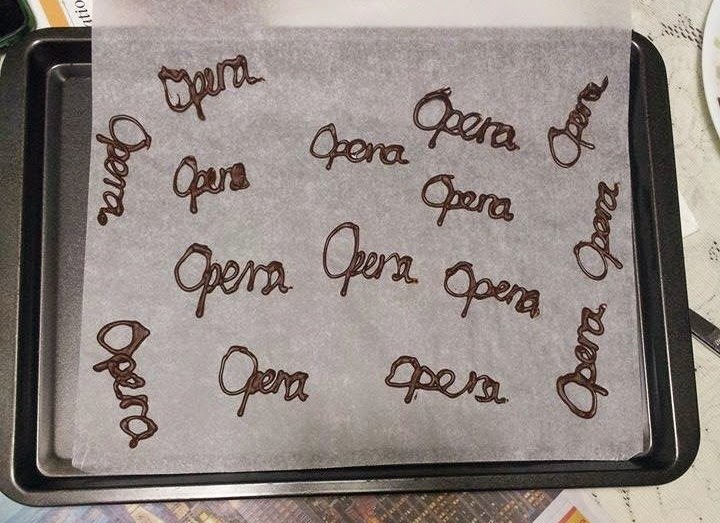 Opera
Opera
Opera
Opera
Opera
Opera
Opera
Opera
Opera
Opera
Opera
Opera
Opera
Opera
Opera